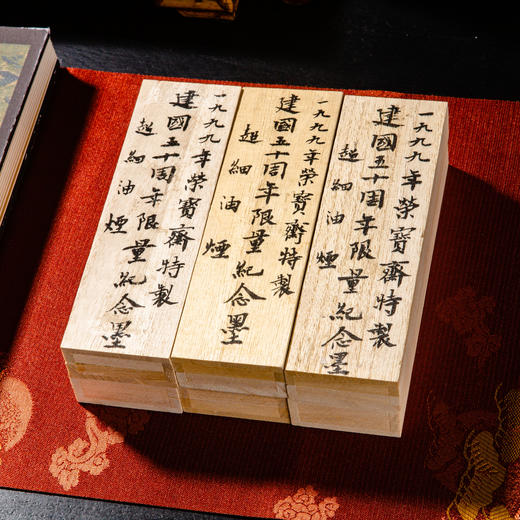 一九九九年榮寶齋特製
建國五十周年限量紀念墨
超細油煙
一九九九年榮寶齋特製
建國五十周年限量紀念墨
超細油煙
一九九九年榮寶齋特製
建國五十周年限量紀念墨
超細油煙